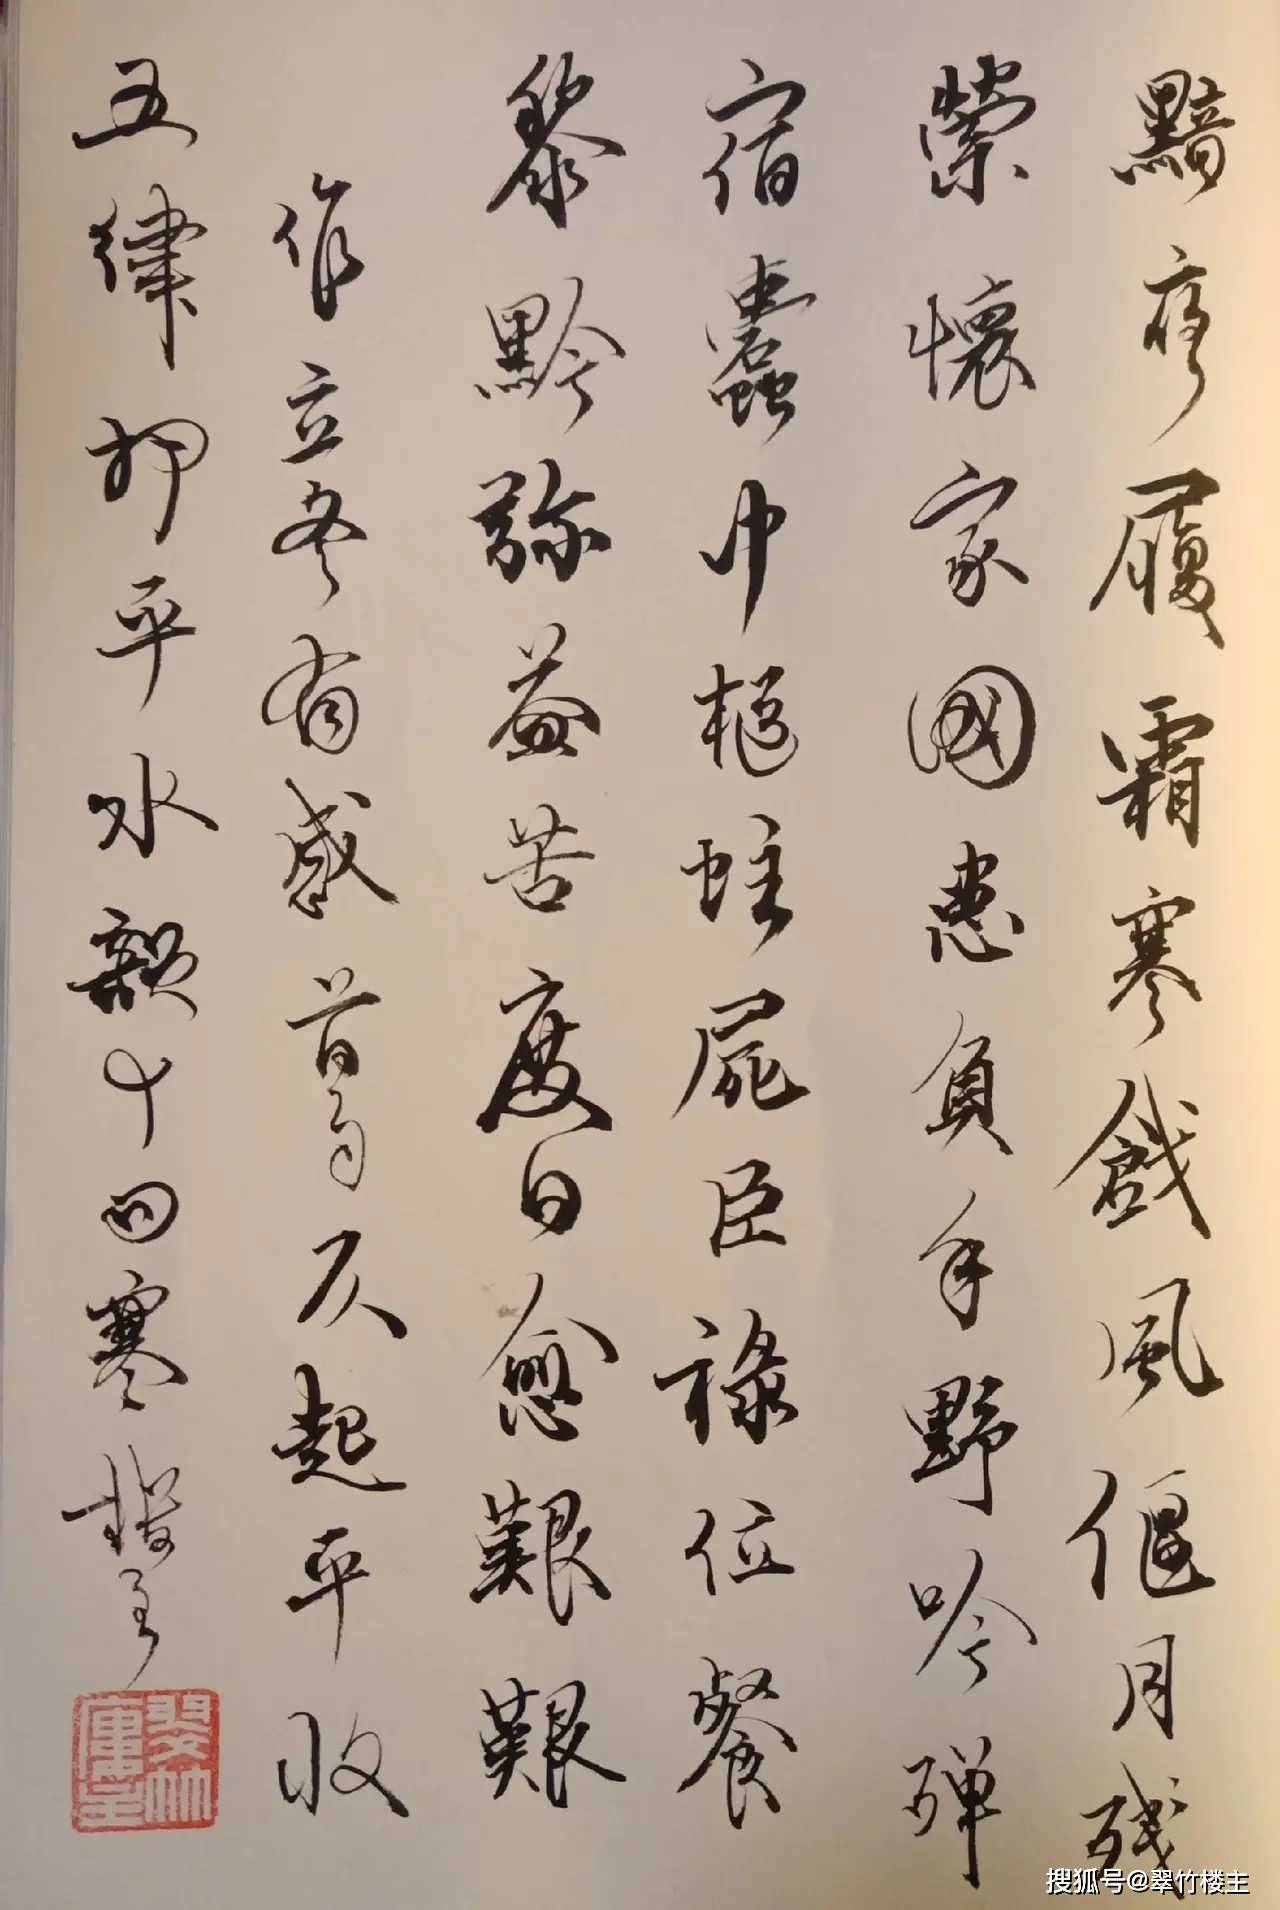 黯夜履霜寒餞風偃月殘
縈懷家國患負手野吟殫
宿蠹巾樞蛀屍臣祿位餐
黎黔弥益苦度日愈艱艱
作立冬有感首句仄起平收
五律押平水韻十四寒楼主
翠竹樓主
搜狐号@翠竹楼主